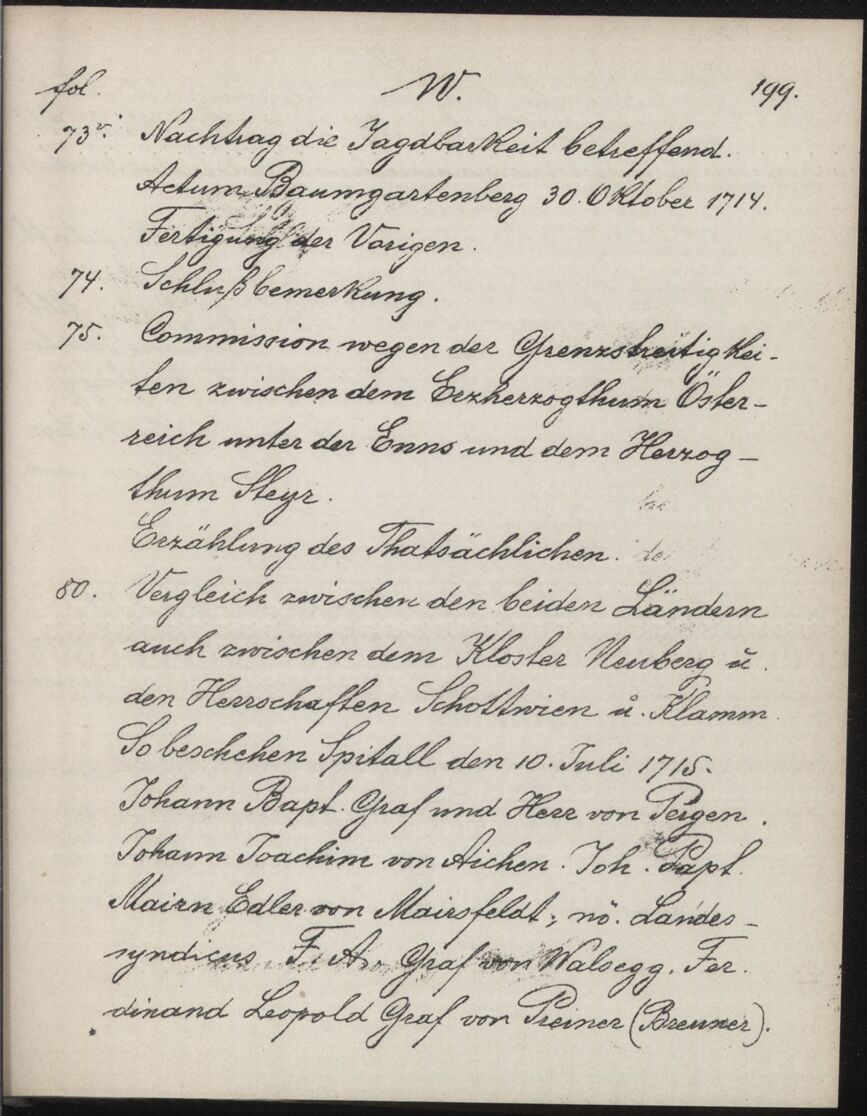 fol. W. 199.
73v. Nachtrag die Jagdbarkeit betreffend.
Actum Baumgartenberg 30. Oktober 1714.
Fertigung der Vorigen.
74. Schlußbemerkung.
75. Commission wegen der Grenzstreitigkei-
ten zwischen dem Erzherzogthum Öster-
reich unter der Enns und dem Herzog-
thum Steyr.
Erzählung des Thatsächlichen.
80. Vergleich zwischen den beiden Ländern
auch zwischen dem Kloster Neuberg u.
den Herrschaften Schottwien u. Klamm.
So beschehen Spitall den 10. Juli 1715.
Johann Bapt. Graf und Herr von Pergen.
Johann Joachim von Aichen. Joh. Bapt.
Mairn Edler von Mairsfeldt, nö. Landes-
syndicus F. A. Graf von Walsegg. Fer.
dinand Leopold Graf von Preiner (Breuner).